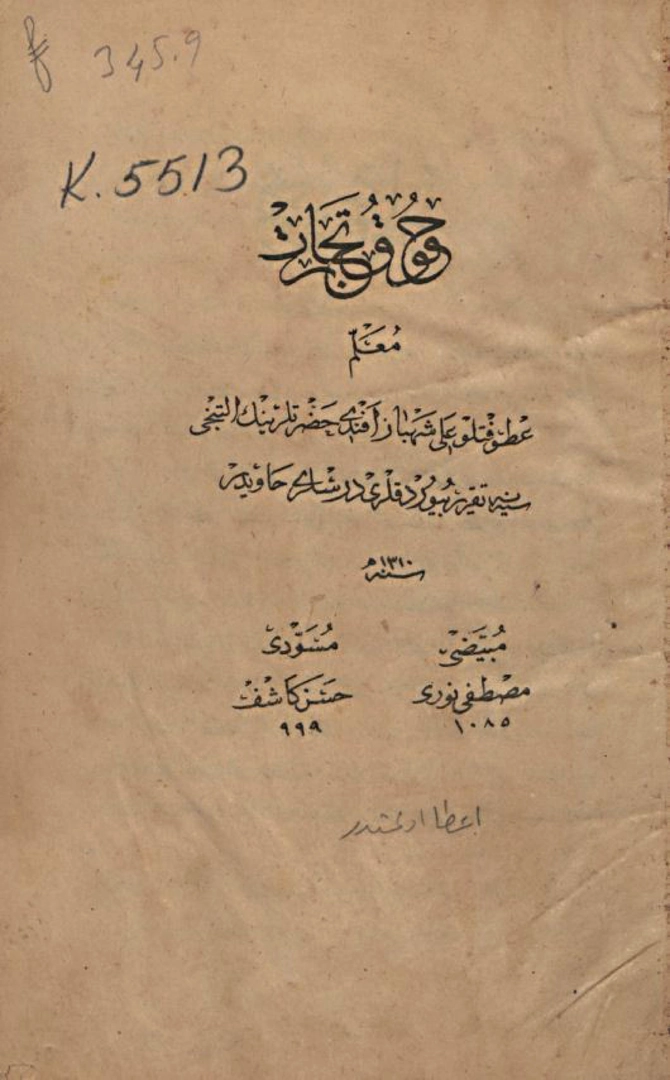 345.9
K. 5513
حقوق تجارت
مُعَلِّمْ
عطوفتلو علی شهباز افندی حضرتلرینك التنجی
سنه یه تقریر بیوردقلری درسلری حاویدر
سنه ۱۳۱۰
مبيّضی مسوّدی
مصطفی نوری حسن کاشف
۱۰۸۵ ۹۹۹
اعطا اولنمشدر